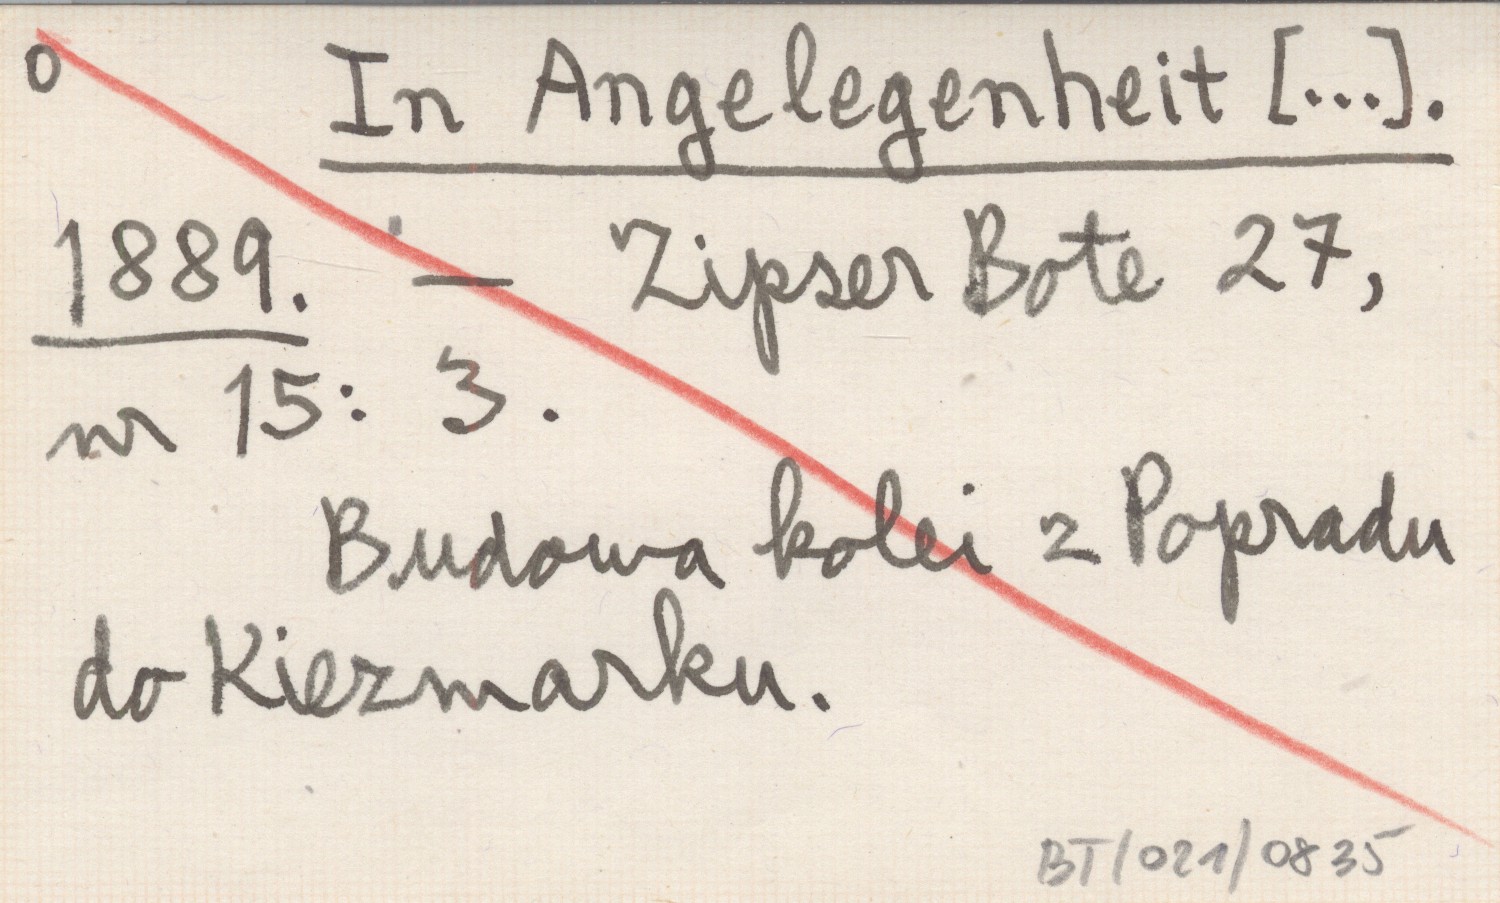 o In Angelegenheit [...].
1889. — Zipser Bote 27,
nr 15: 3.
Budowa kolei z Popradu
do Kiezmarku.
BT/021/0835